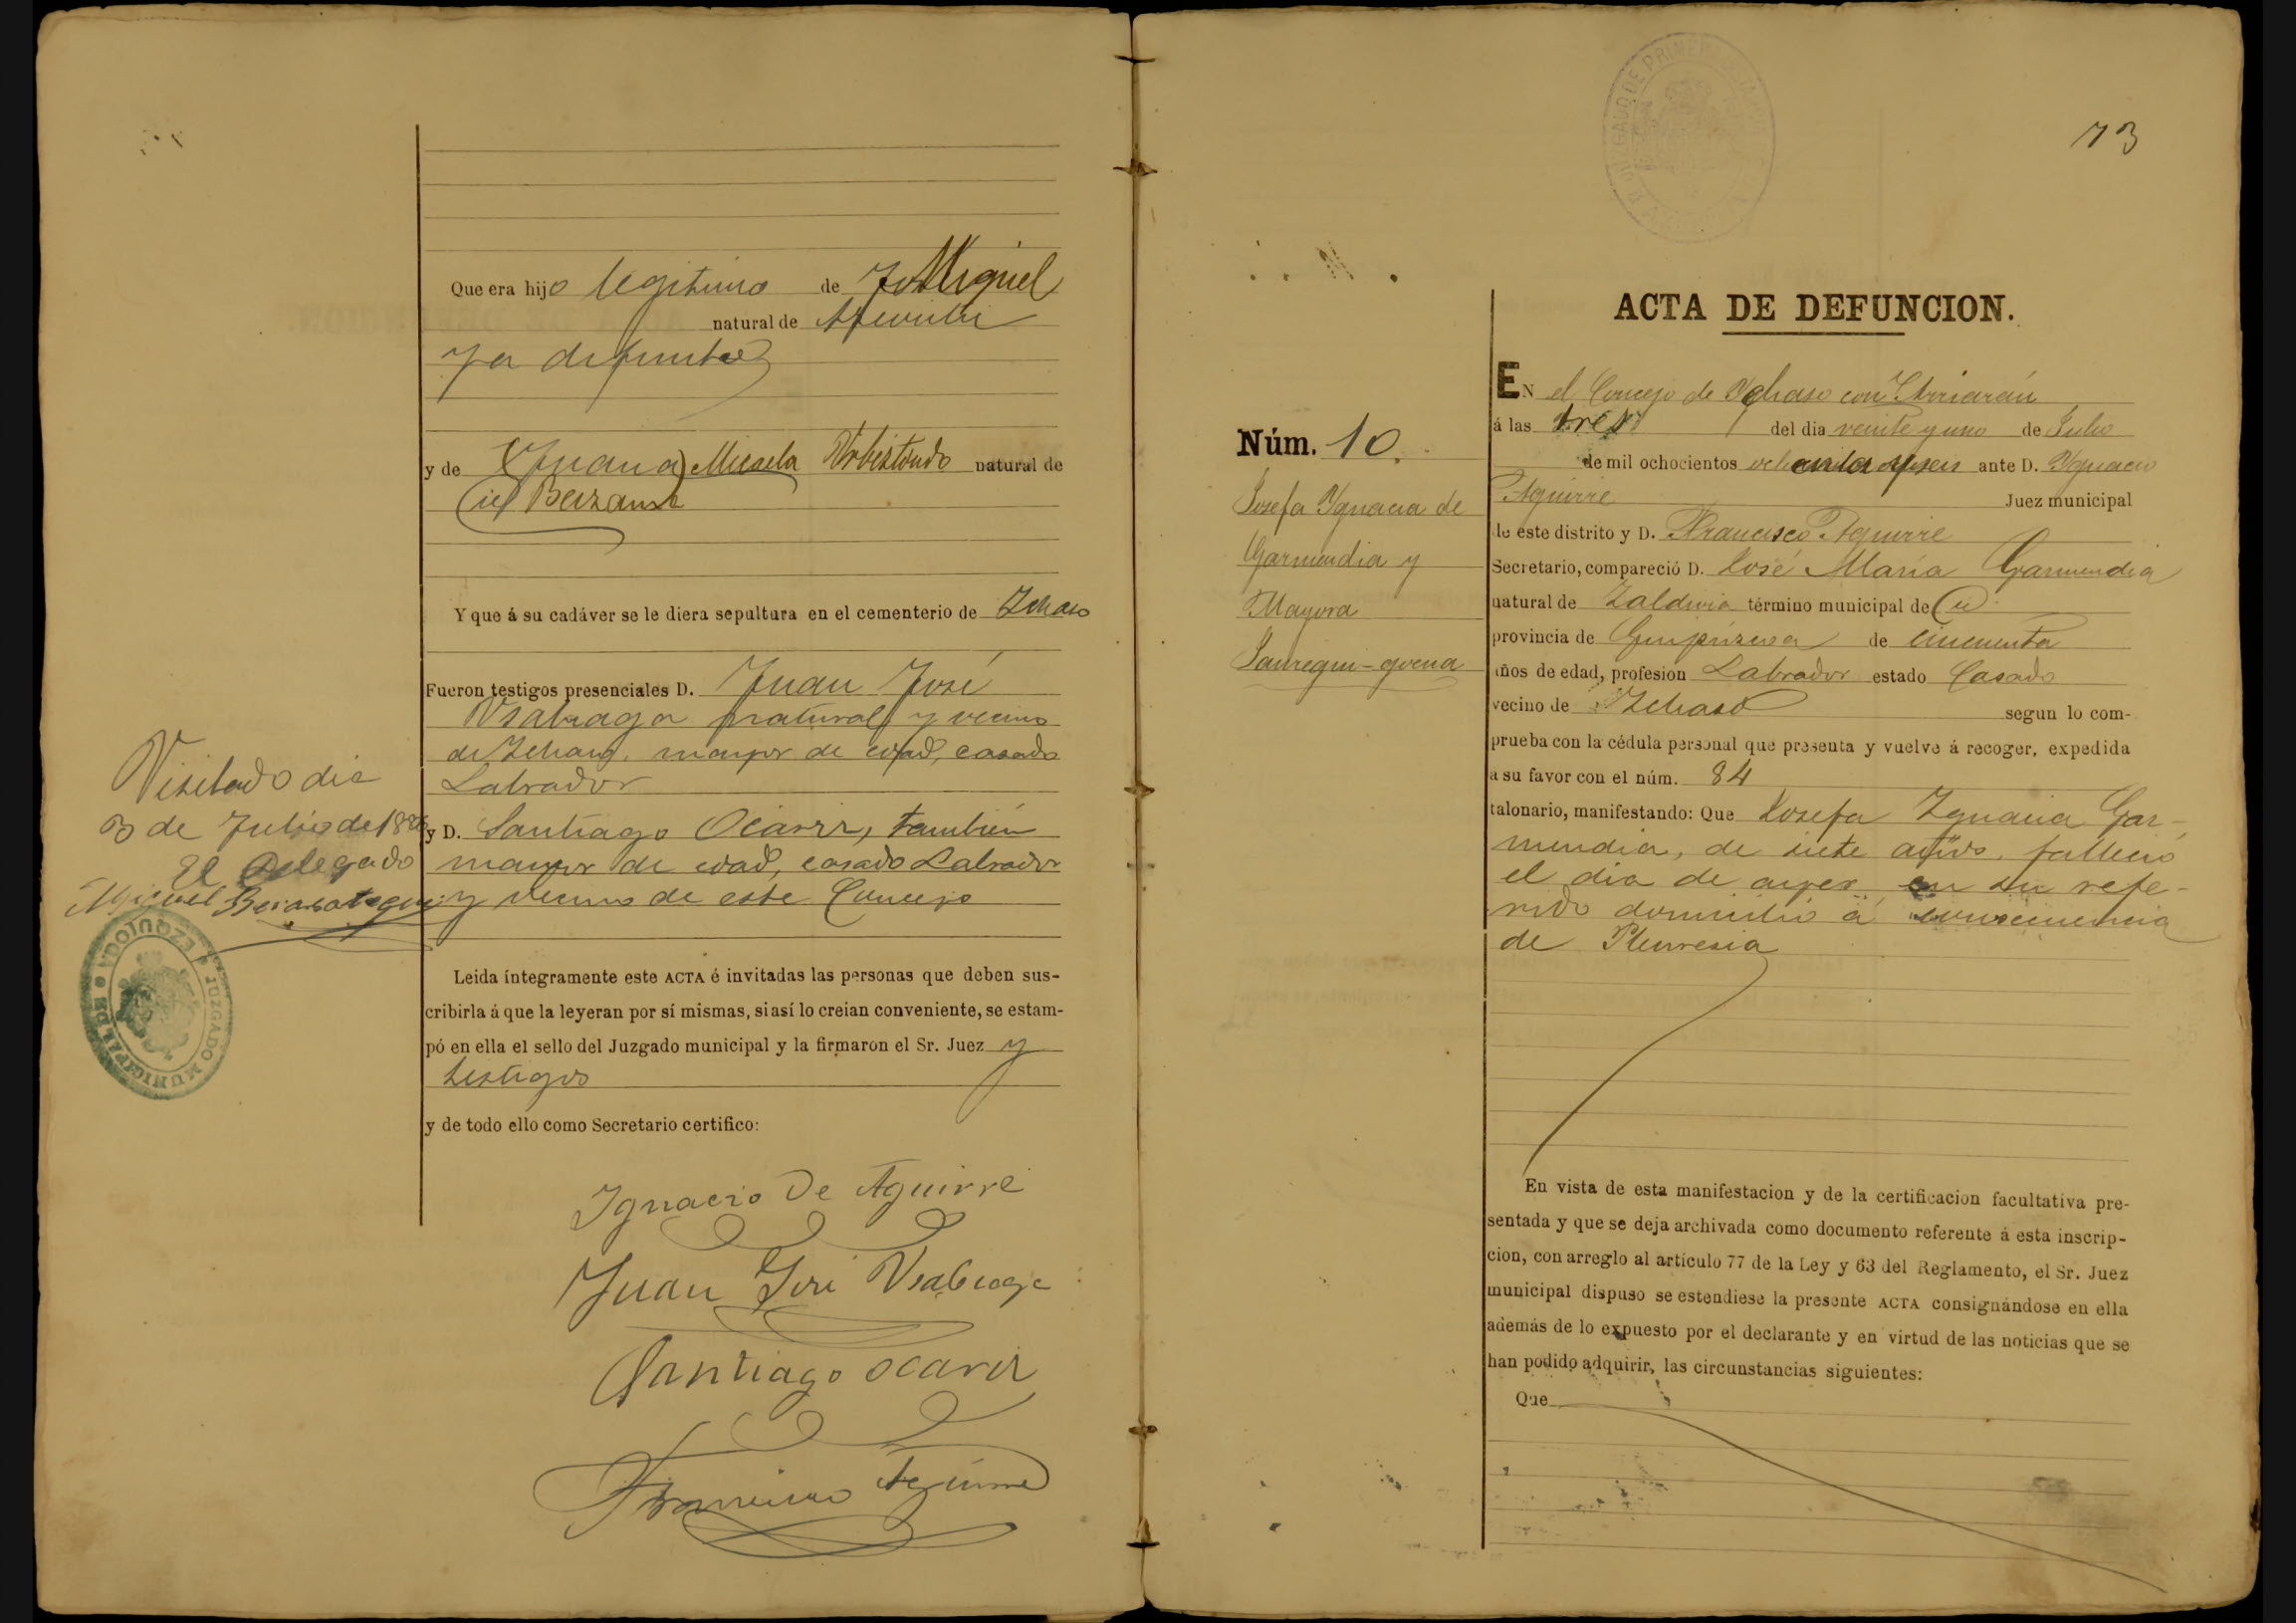 Que era hijo legitimo de José Miguel
natural de
ya difunto
y de (Juana) Micaela Urbistondo natural de
(id Beizama
Y que á su cadáver se le diera sepultura en el cementerio de Ichaso
Fueron testigos presenciales D. Juan José
Usabiaga natural y vecino
de Ichaso, mayor de edad, casado
Labrador
y D. Santiago Ocariz, también
mayor de edad, casado Labrador
y vecino de este Concejo
Leida íntegramente este ACTA é invitadas las personas que deben sus-
cribirla á que la leyeran por sí mismas, si así lo creian conveniente, se estam-
pó en ella el sello del Juzgado municipal y la firmaron el Sr. Juez y
testigos
y de todo ello como Secretario certifico:
Ignacio De Aguirre
Juan José Usabiaga
Santiago Ocariz
Francisco Aguirre
Visitado dia
3 de Julio de
El Delegado
Miguel Berasategui
JUZGADO MUNICIPAL DE EZQUIOGA
73
ACTA DE DEFUNCION.
Núm. 10.
Josefa Ygnacia de
Garmendia y
Mayora
Jauregui-goena
EN el Concejo de Ychaso con Arriarán
á las tres del dia veinte y uno de Julio
de mil ochocientos ochenta y seis ante D. Ygnacio
Aguirre Juez municipal
de este distrito y D. Francisco Aguirre
Secretario, compareció D. José María Garmendia
natural de Zaldivia término municipal de id
provincia de Guipúzcoa de cincuenta
años de edad, profesion Labrador estado Casado
vecino de Ichaso segun lo com-
prueba con la cédula personal que presenta y vuelve á recoger, expedida
a su favor con el núm. 84
talonario, manifestando: Que Josefa Ignacia Gar-
mendia, de siete años, falleció
el dia de ayer en su refe-
rido domicilio á consecuencia
de Pleuresia
En vista de esta manifestacion y de la certificacion facultativa pre-
sentada y que se deja archivada como documento referente á esta inscrip-
cion, con arreglo al artículo 77 de la Ley y 63 del Reglamento, el Sr. Juez
municipal dispuso se estendiese la presente ACTA consignándose en ella
además de lo expuesto por el declarante y en virtud de las noticias que se
han podido adquirir, las circunstancias siguientes:
Que